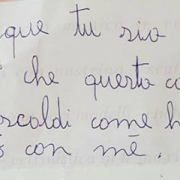 que tu sia
che questa co
scaldi come h
con mē.